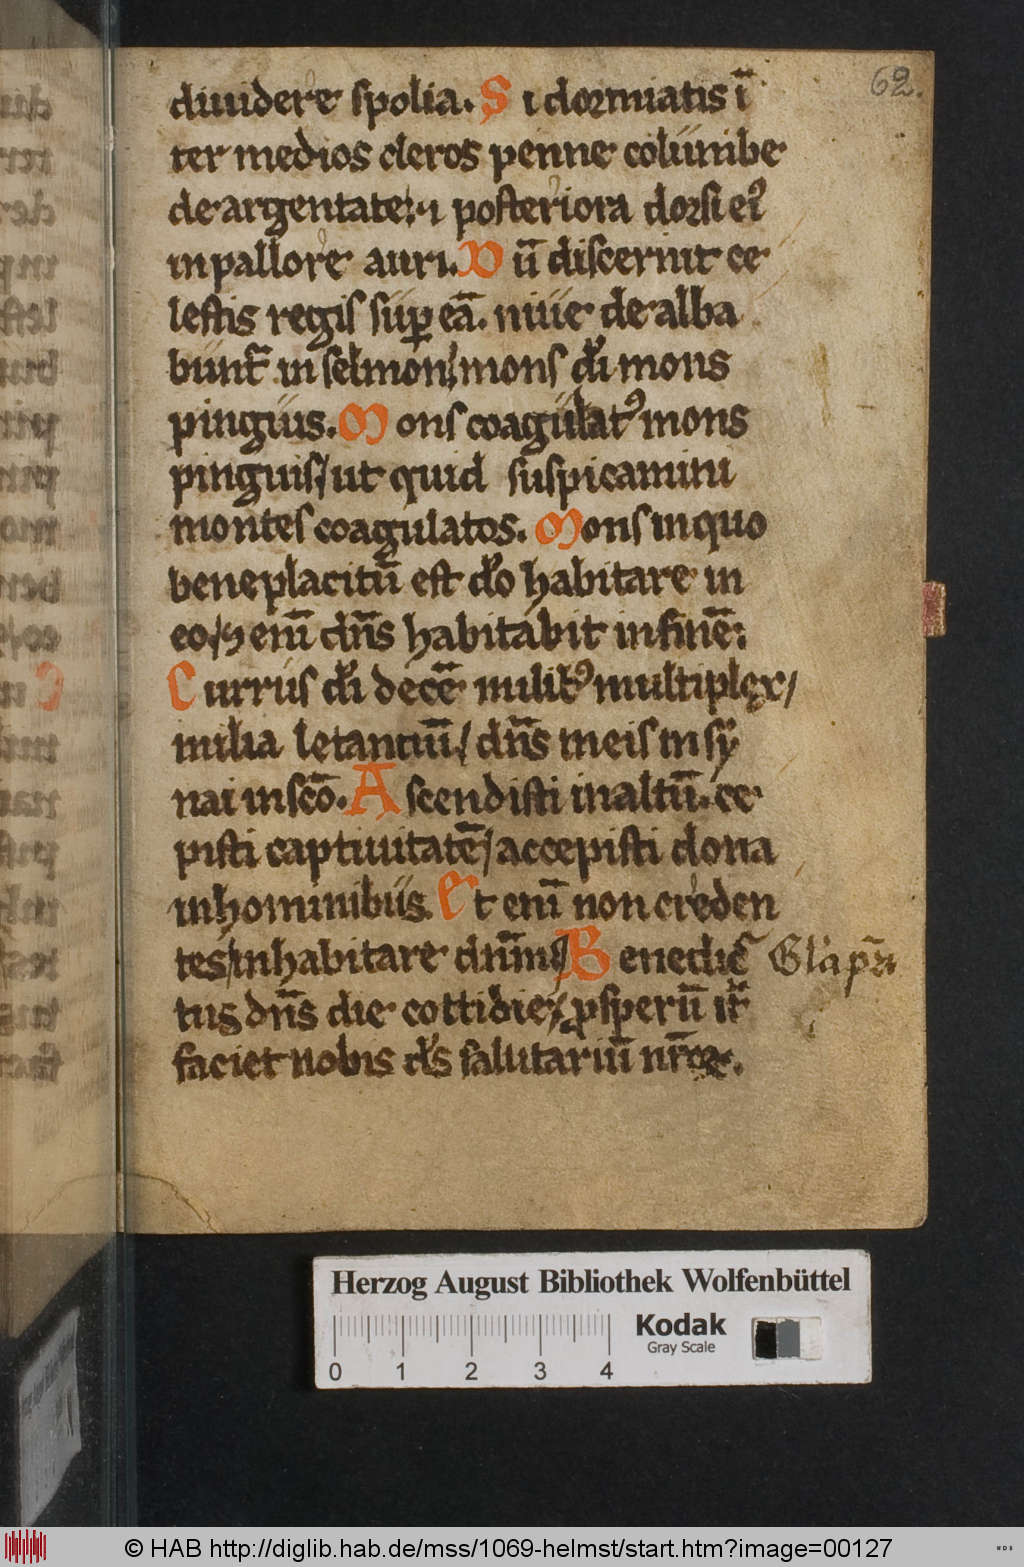 62.
diuidere spolia. Si dormiatis ī
ter medios cleros penne columbe
deargentate / ⁊ posteriora dorsi eiꝰ
in pallore auri. Dū discernit ce
lestis regis suꝑ eā. niue dealba
bunt᷑ in selmon / mons dī mons
pinguis. Mons coagulatꝰ mons
pinguis / ut quid suspicamini
montes coagulatos. Mons in quo
beneplacitū est dō habitare in
eo / ⁊ enī dn̄s habitabit in finē:
Currus dī decē milibꝰ multiplex /
milia letantiū / dn̄s in eis in sy
nai in scō. Ascendisti in altū. ce
pisti captiuitatē / accepisti dona
in hominibus. Et enī non creden
tes / inhabitare dn̄m Benedic᷑ Gl'a pr̄i
tus dn̄s die cottidie / ꝓsperū it᷑
faciet nobis ds̄ salutariū nr̄oꝝ.
Herzog August Bibliothek Wolfenbüttel
Kodak
Gray Scale
0 1 2 3 4
© HAB http://diglib.hab.de/mss/1069-helmst/start.htm?image=00127